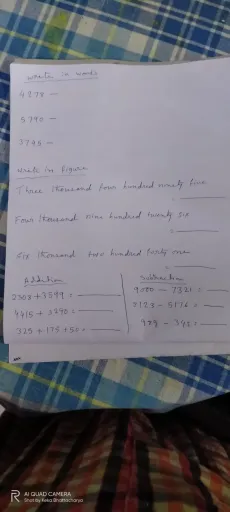 write in words
4278 —
5790 —
7745 —
write in figure
Three thousand four hundred ninety five
= ______
Four thousand nine hundred twenty six
= ______
Six thousand two hundred forty one
= ______
Addition
2308 + 3599 = ______
4415 + 3290 = ______
325 + 175 + 50 = ______
Subtraction
9000 - 7321 = ______
8128 - 5116 = ______
989 - 342 = ______
REDMI
AI QUAD CAMERA
Shot by Reka Bhattacharya